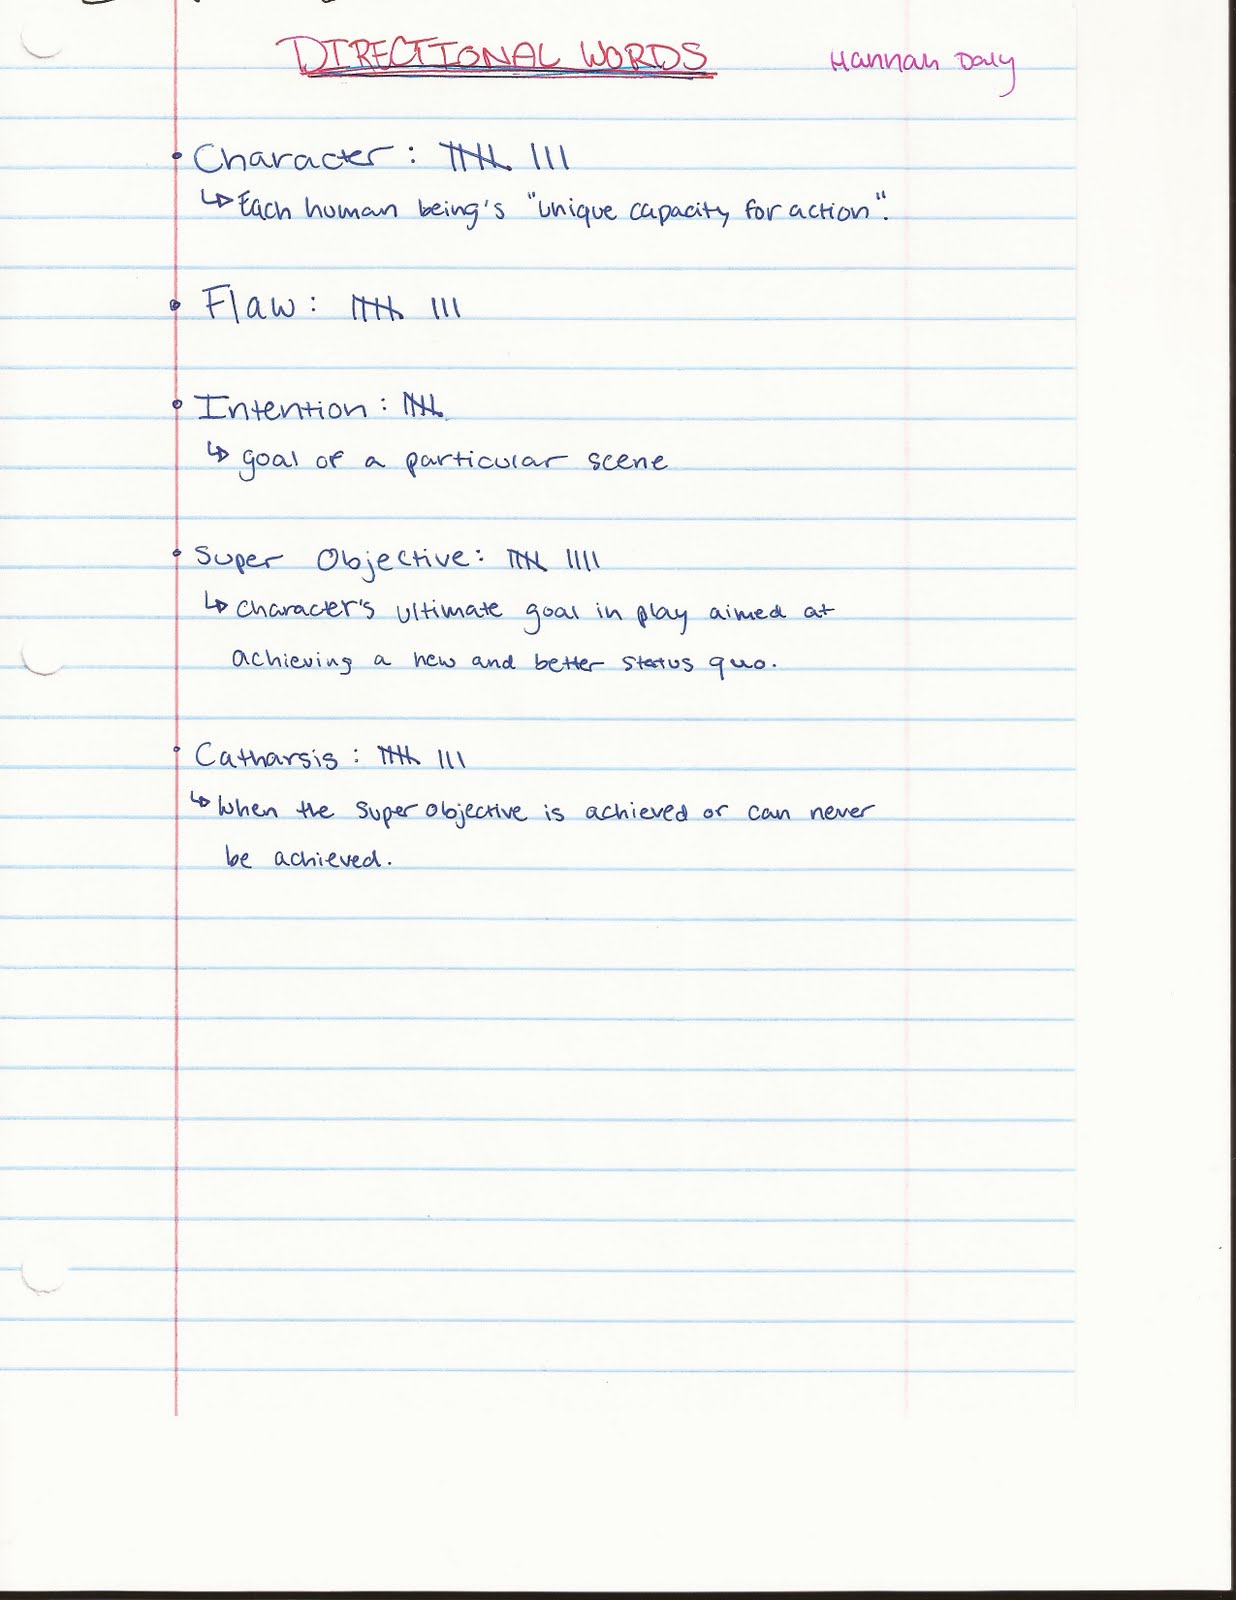 DIRECTIONAL WORDS Hannah Daly
• Character: 𝍸 III
↳ Each human being's "unique capacity for action".
• Flaw: 𝍸 III
• Intention: 𝍸
↳ goal of a particular scene
• Super Objective: 𝍸 IIII
↳ character's ultimate goal in play aimed at
achieving a new and better status quo.
• Catharsis: 𝍸 III
↳ When the super objective is achieved or can never
be achieved.